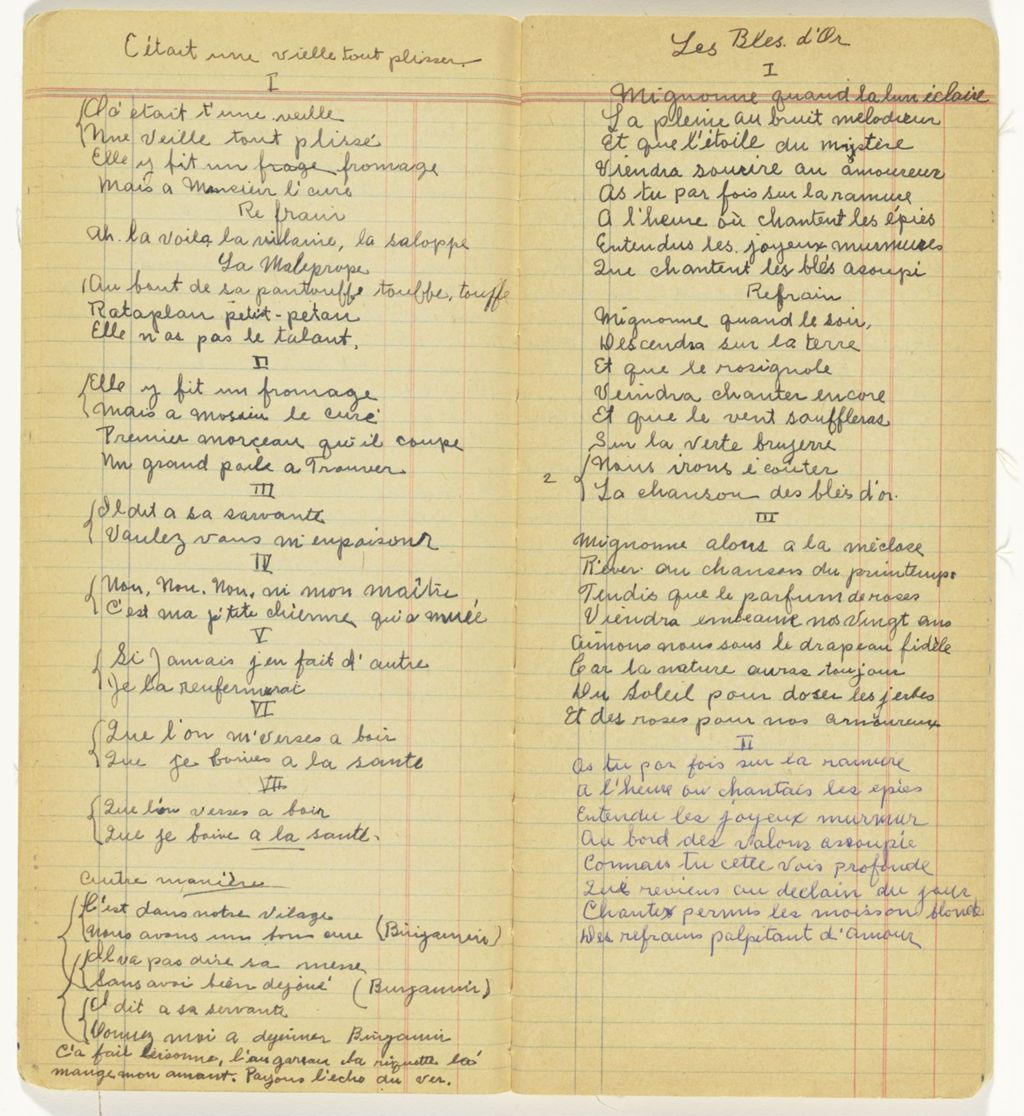 C'était une vielle tout plisser.
I
Ch'a était t'une veille
Une veille tout plissé
Elle y fit un frage fromage
Mais a Monsieur l'curé
Refrain
Ah. la voila la vilaine, la saloppe
La Malprope
Au bout de sa pantouffe touffe, touffe
Rataplan petit-petan
Elle n'as pas le talant.
II
Elle y fit un fromage
Mais a Mosieu le curé
Premier morçeau qu'il coupe
Un grand poile a Trouver
III
Il dit a sa sarvante
Voulez vous m'enpoisonr
IV
Non, Non, Non, ni mon maître
C'est ma p'tite chienne qui a muée
V
Si Jamais j'en fait d'autre
Je la renfermerai
VI
Que l'on m'verses a boir
Que je boives a la sante
VII
Que l'on verses a boir
Que je boive a la santé.
autre manière
C'est dans notre vilage
Nous avons un bon cure (Binjamin)
Il va pas dire sa messe
Sans avoi bien dejoné (Bunjamin)
Il dit a sa servante
Donnez moi a dejeiner Binjamin
C'a fait lessonne, l'an garsau la riguette la
mange mon amant. Payons l'echo du ver.
Les Bles. d'Or
I
Mignonne quand la lun éclaire
La pleine au bruit melodieur
Et que l'étoile du mystère
Viendra sourire au amoureux
As tu par fois sur la ramure
A l'heure où chantent les épiés
Entendus les joyeux murmures
Que chantent les blés asoupi
Refrain
Mignonne quand le soir,
Descendra sur la terre
Et que le rosignole
Veindra chanter encore
Et que le vent souffleras
Sur la verte bruyerre
Nous irons écouter
2 La chanson des blés d'or.
III
Mignonne alons a la méclose
Rêver au chanson du printemps
Tindis que le parfum de roses
Viendra embeaume nos vingt ans
Aimons nous sous le drapeau fidèle
Car la nature auras toujour
Du Soleil pour doser les jerbes
Et des roses pour nos amoureux
II
As tu par fois sur la ramure
a l'heure ou chantais les epies
Entendu les joyeux murmur
Au bord des valons asoupie
Connais tu cette vois profonde
Qui reviens au declain du jour
Chantex permis les moisson blonde
Des refrains palpitant d'amour